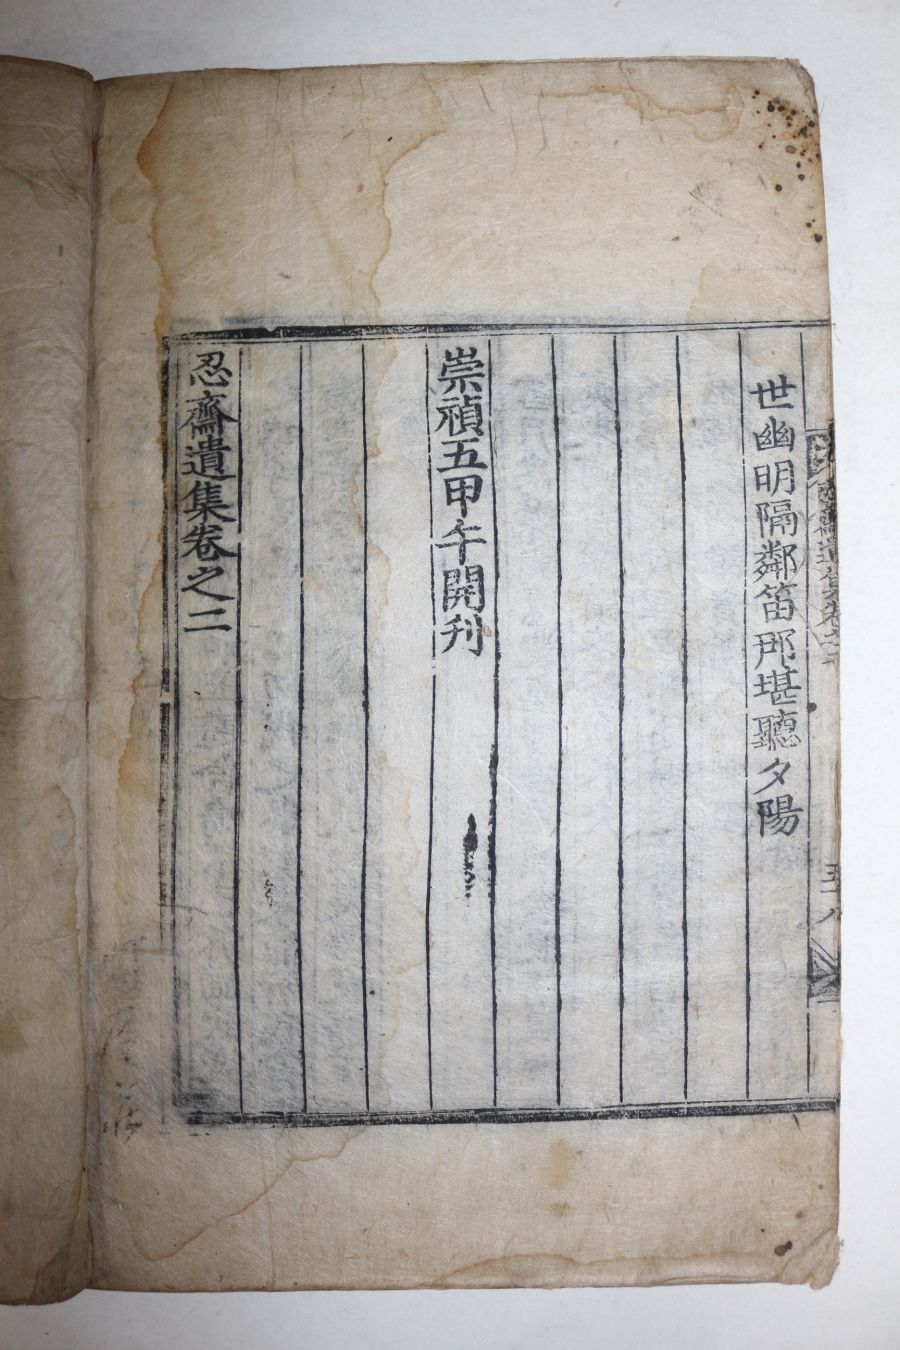 世幽明隔鄰笛那堪聽夕陽
崇禎五甲午開刊
忍齋遺集卷之二